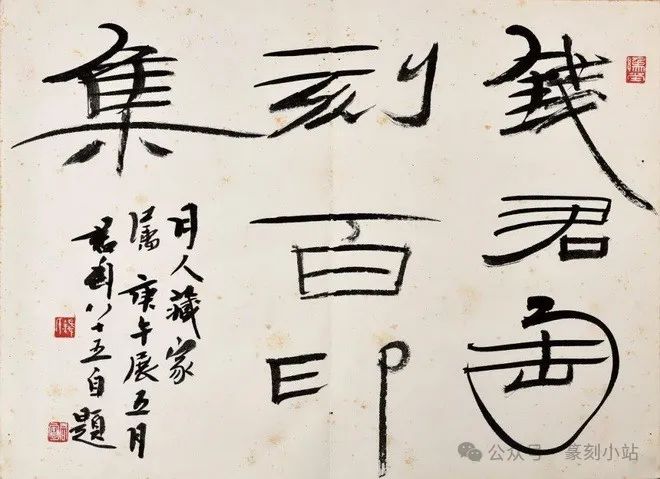 钱君匋
刻百印
集
月人藏家
属 庚午展五月
君匋八十五自题
公众号 · 篆刻小站